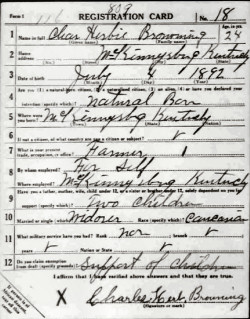 Form 1 809 No. 18
REGISTRATION CARD
1 Name in full Char Herbie Browning Age in yrs. 24
(Given name) (Family name)
2 Home address McKinnysburg Kentucky
3 Date of birth July 4 1892
(Month) (Day) (Year)
4 Are you (1) a natural-born citizen, (2) a naturalized citizen, (3) an alien, (4) or have you declared your intention (specify which)? Natural Born
5 Where were you born? McKinnysburg Kentucky
6 If not a citizen, of what country are you a citizen or subject?
7 What is your present trade, occupation, or office? Farmer
8 By whom employed? For Self
Where employed? McKinnysburg Kentucky
9 Have you a father, mother, wife, child under 12, or a sister or brother under 12, solely dependent on you for support (specify which)? Two Children
10 Married or single (which)? Widower Race (specify which)? Caucasian
11 What military service have you had? Rank non branch
years Nation or State
12 Do you claim exemption from draft (specify grounds)? Support of Children
I affirm that I have verified above answers and that they are true.
X Charles Herb. Browning